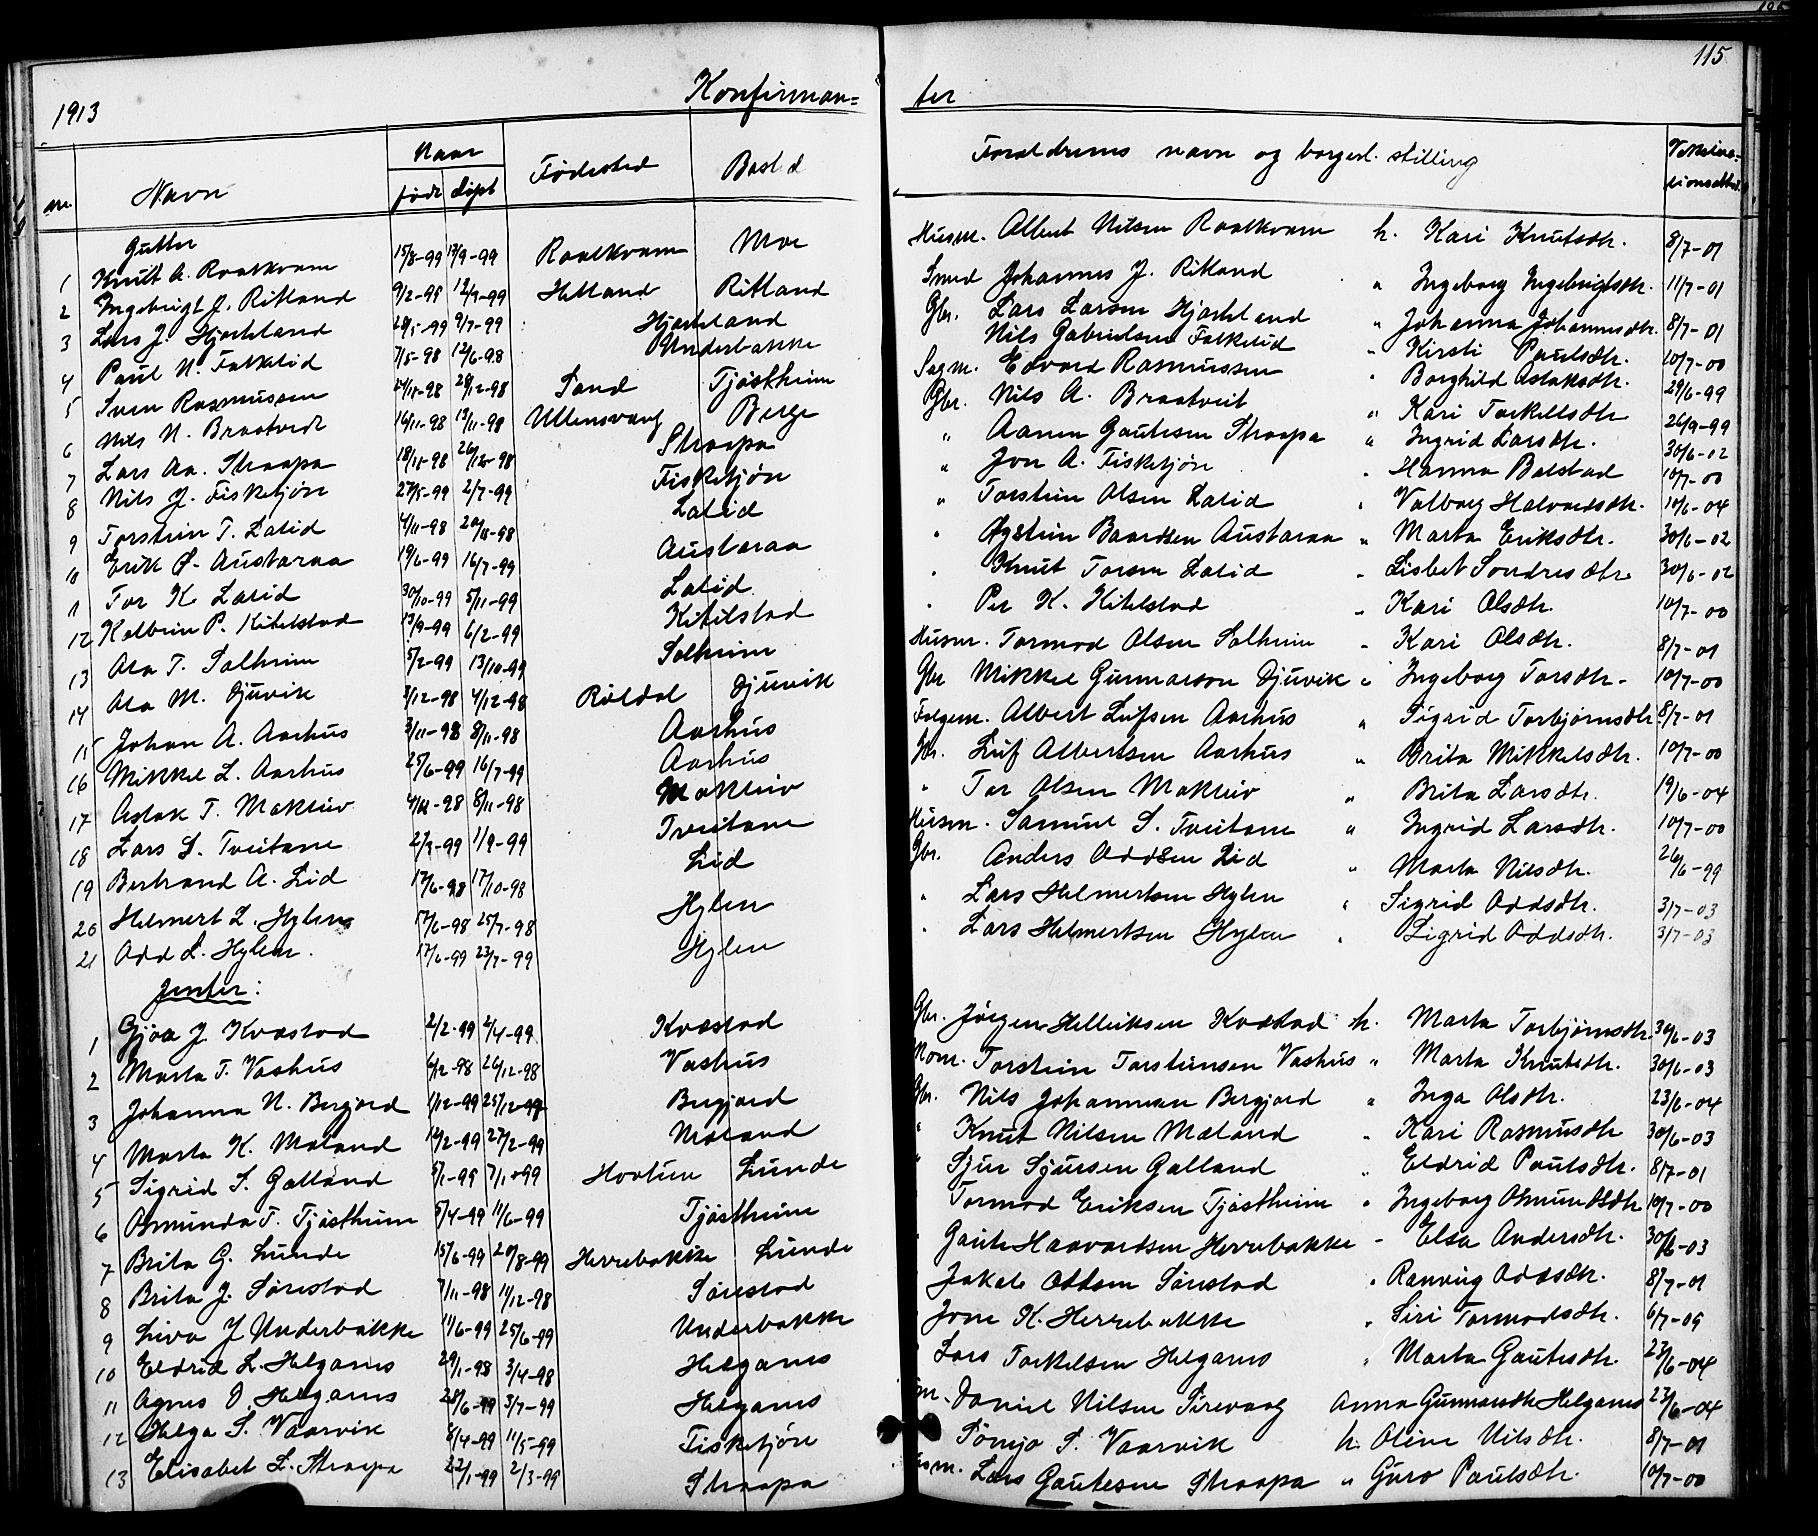 115
1913 Konfirman= ter
nr. Navn Naar Fødested Bosted Foraldrenes navn og borgerl. stilling
født døpt
Gutter
1 Knut A. Raalkvam 15/8-99 17/9-99 Raalkvam Moe Husm. Albert Nilsen Raalkvam h. Kari Knutsdtr. 8/7-01
2 Ingebrigt J. Ritland 9/2-99 12/3-99 Helland Ritland Smed Johannes J. Ritland " Ingeborg Ingebrigtsdtr. 11/7-01
3 Lars J. Hjorteland 9/7-99 Hjorteland Gbr. Lars Larsen Hjorteland " Johanna Johannesdtr. 8/7-01
4 Paul N. Falkelid 7/5-98 12/6-98 Underbakke Nils Gabrielsen Falkelid " Kirsti Paulsdtr. 10/7-00
5 Sven Rasmussen 26/12-98 Sand Tjøstheim Sagm. Edvard Rasmussen " Borghild Aslaksdtr. 29/6-99
6 Nils N. Braatveit 16/11-98 Ullensvang Berge Gbr. Nils A. Braatveit " Kari Torkellsdtr. 26/9-99
7 Lars Aa. Straapa 26/12-98 Straapa " Aanen Gautesen Straapa " Ingrid Larsdtr. 30/6-02
8 Nils J. Fisketjøn 27/5-99 2/7-99 Fisketjøn " Jon A. Fisketjøn " Hanna Bolstad 10/7-00
9 Torstein T. Lalid 4/11-98 Lalid " Torstein Olsen Lalid " Valborg Halvordsdtr. 10/6-04
10 Erik Ø. Austaraa 19/6-99 16/7-99 Austaraa " Øystein Baardsen Austaraa " Marta Eriksdtr. 30/6-02
11 Tor K. Lalid 30/10-99 5/11-99 Lalid " Knut Torsen Lalid " Lisbet Sondresdtr. 30/6-02
12 Kolbein P. Kitelstad 6/2-99 Kitelstad " Per K. Kitelstad " Kari Olsdtr. 10/7-00
13 Ola T. Solheim 5/2-99 13/10-99 Solheim Husm. Tormod Olsen Solheim " Kari Olsdtr. 8/7-01
14 Ola M. Djuvik 3/12-98 4/12-98 Røldal Djuvik Gbr. Mikkel Gunnarson Djuvik " Ingeborg Torsdtr. 10/7-00
15 Johan A. Aarhus 3/11-98 8/11-98 Aarhus Folgem. Albert Leifsen Aarhus " Sigrid Torbjørnsdtr. 8/7-01
16 Mikkel L. Aarhus 25/6-99 16/7-99 Aarhus Gbr. Leif Albertsen Aarhus " Brita Mikkelsdtr. 10/7-00
17 Aslak T. Mokleiv 8/11-98 Mokleiv " Tor Olsen Mokleiv " Brita Larsdtr. 19/6-04
18 Lars S. Tveitane 2/7-99 1/9-99 Tveitane Husm. Samuel S. Tveitane " Ingrid Larsdtr. 10/7-00
19 Bertrand A. Lid 17/10-98 Lid Gbr. Anders Oddsen Lid " Marta Nilsdtr. 26/6-99
20 Helmert L. Hylen 17/6-98 25/7-98 Hylen " Lars Helmertsen Hylen " Sigrid Oddsdtr. 3/7-03
21 Odd L. Hylen. 17/6-99 23/7-99 Hylen " Lars Helmertsen Hylen " Sigrid Oddsdtr. 3/7-03
Jenter:
1 Gjøa J. Kvæstad 2/2-99 2/4-99 Kvæstad Gbr. Jørgen Helliksen Kvæstad h. Marta Torbjørnsdtr. 30/6-03
2 Marta T. Vashus 26/12-98 Vashus Torstein Torsteinsen Vashus " Marta Knutsdtr. 30/6-03
3 Johanna N. Bergjord 1/12-99 25/12-99 Bergjord Gbr. Nils Johannesen Bergjord " Inga Olsdtr. 23/6-04
4 Marta K. Mæland 27/2-99 Mæland " Knut Nilsen Mæland " Kari Rasmusdtr. 30/6-03
5 Sigrid S. Galland 5/1-99 Hovtun Lunde " Sjur Sjursen Galland " Eldrid Paulsdtr. 8/7-01
6 Osmunda T. Tjøstheim 5/4-99 11/6-99 Tjøstheim Tormod Eriksen Tjøstheim " Ingeborg Osmundsdtr. 10/7-00
7 Brita G. Lunde 15/6-99 20/8-99 Herrebakke Lunde Gaute Haavardsen Herrebakke " Elsa Andersdtr. 30/6-03
8 Brita J. Sørestad 7/11-98 11/12-98 Sørestad Jakob Oddsen Sørestad " Ranveig Oddsdtr. 8/7-01
9 Liva J. Underbakke 11/6-99 25/6-99 Underbakke Jone K. Herrebakke " Siri Tormodsdtr. 6/7-09
10 Eldrid L. Helganes 29/1-98 3/4-98 Helganes Lars Torkelsen Helganes " Marta Gautesdtr. 23/6-04
11 Agnes D. Helganes 28/6-99 3/7-99 Helganes Daniel Nilsen Sirevaag Anna Gunnarsdtr. Helganes 23/6-04
12 Helga S. Vaarvik 8/4-99 11/5-99 Fisketjøn Sømjo S. Vaarvik h. Oline Nilsdtr. 8/7-01
13 Elisabet L. Straapa 22/1-99 2/3-99 Straapa Lars Gautesen Straapa " Guro Paulsdtr. 10/7-00